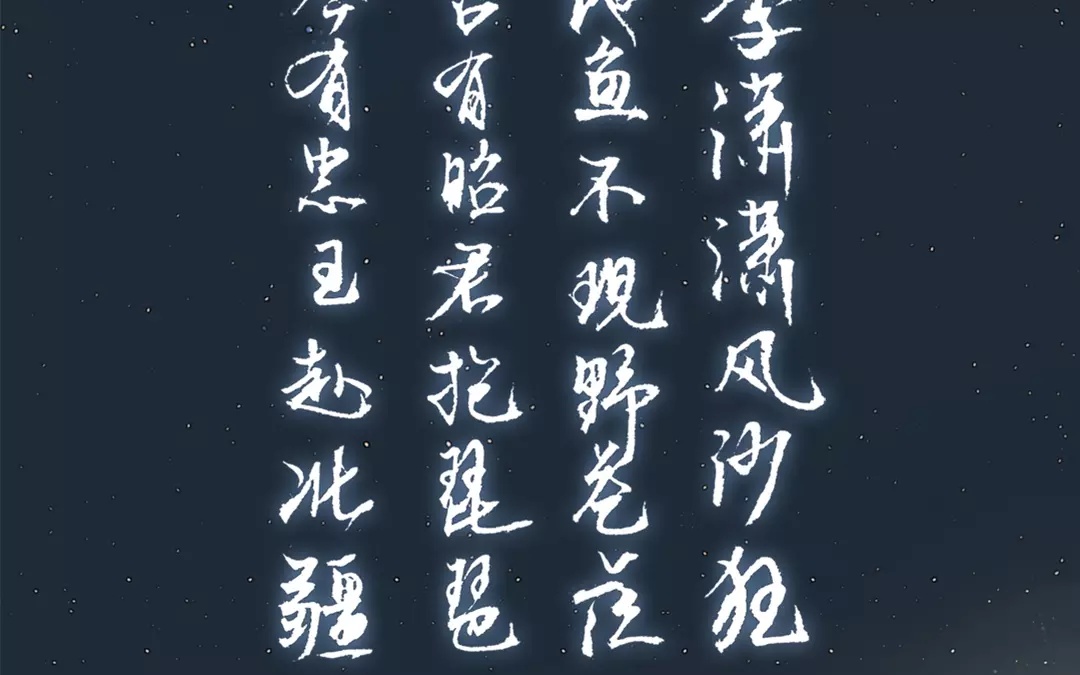 潇潇风沙狂
鱼不现野苍茫
古有昭君抱琵琶
今有忠王赴北疆